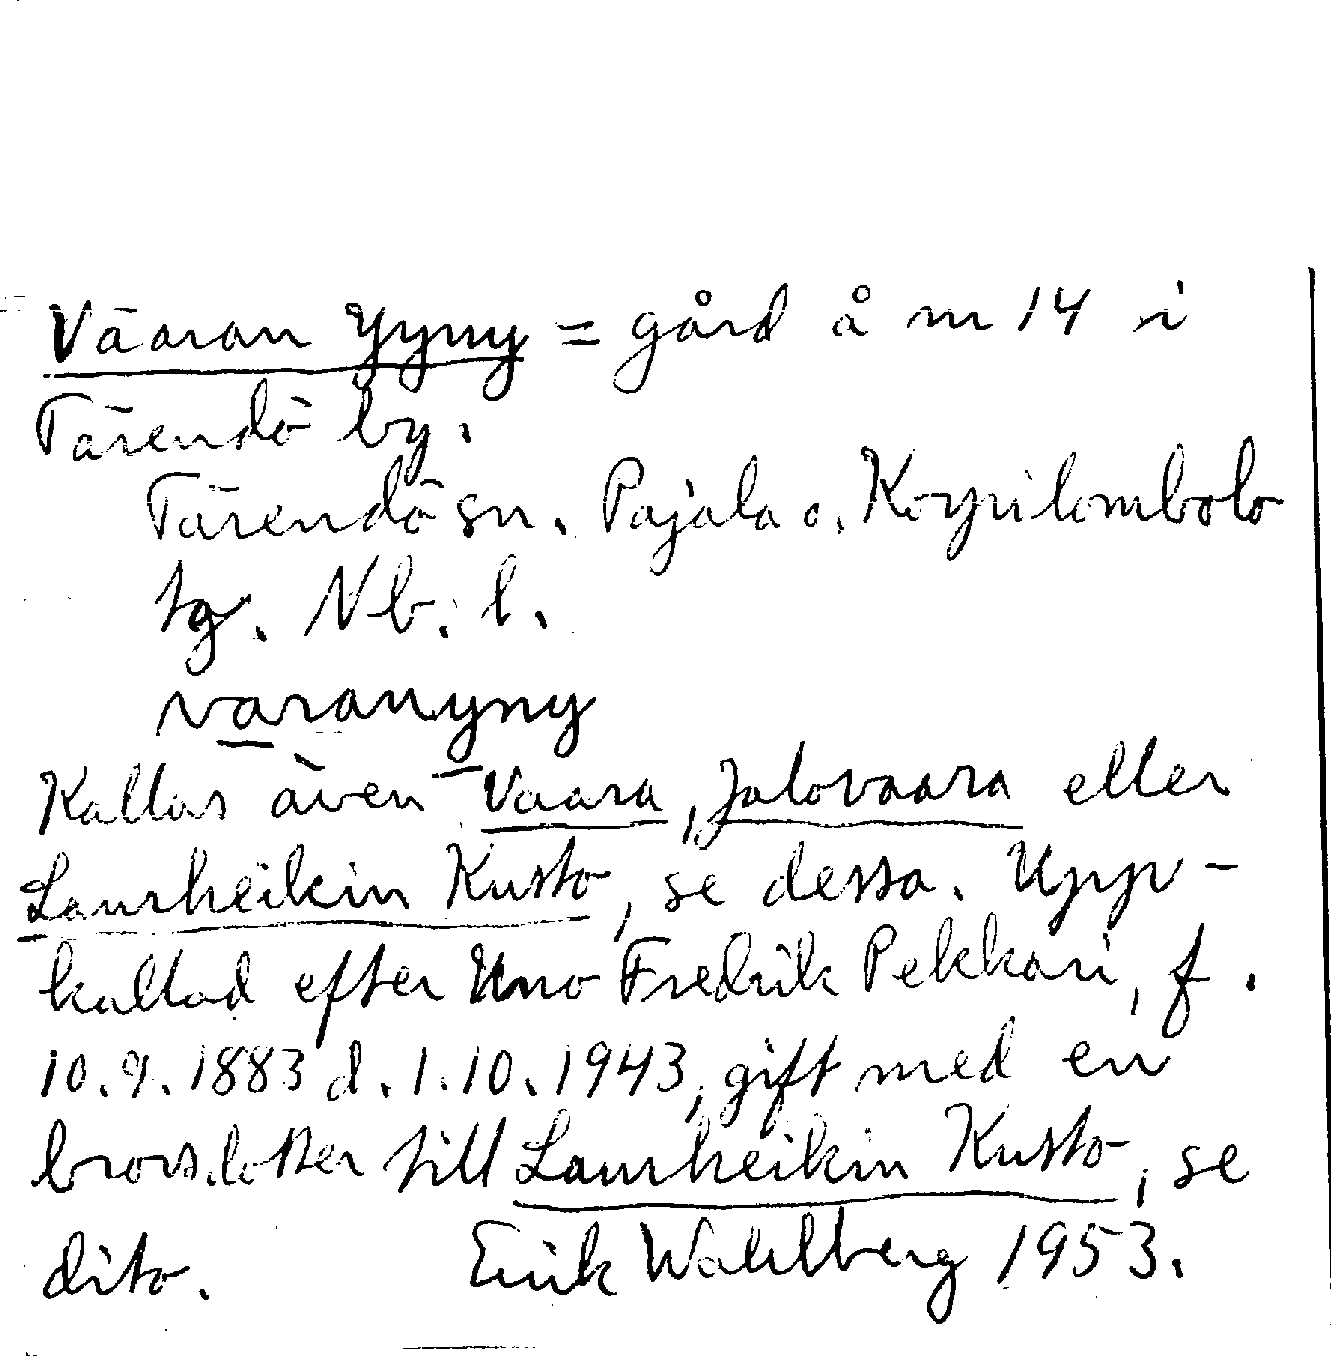 Vaaran Yyny = gård å nr 14 i
Tärendö by.
Tärendö sn. Pajala o. Korpilombolo
tg. Nb. l.
varanyny
Kallas även Vaara, Jalovaara eller
Laurheikin Kusto, se dessa. Upp-
kallad efter Uno Fredrik Pekkari, f.
10.9.1883 d. 1.10.1943, gift med en
brorsdotter till Laurheikin Kusto, se
dito. Erik Wahlberg 1953.